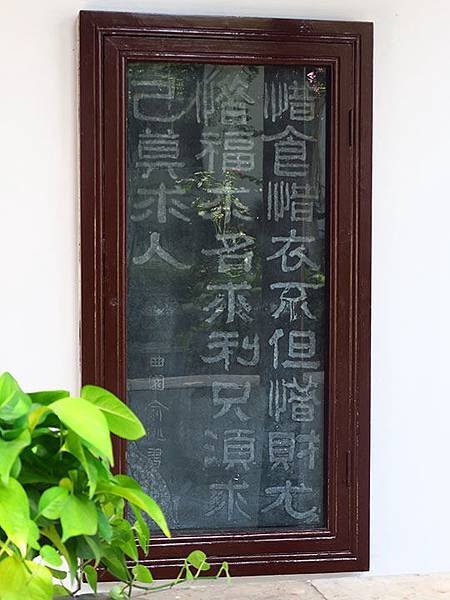 惜食惜衣不但惜財尤
惜福求名求利只須求
己莫求人
曲園
書